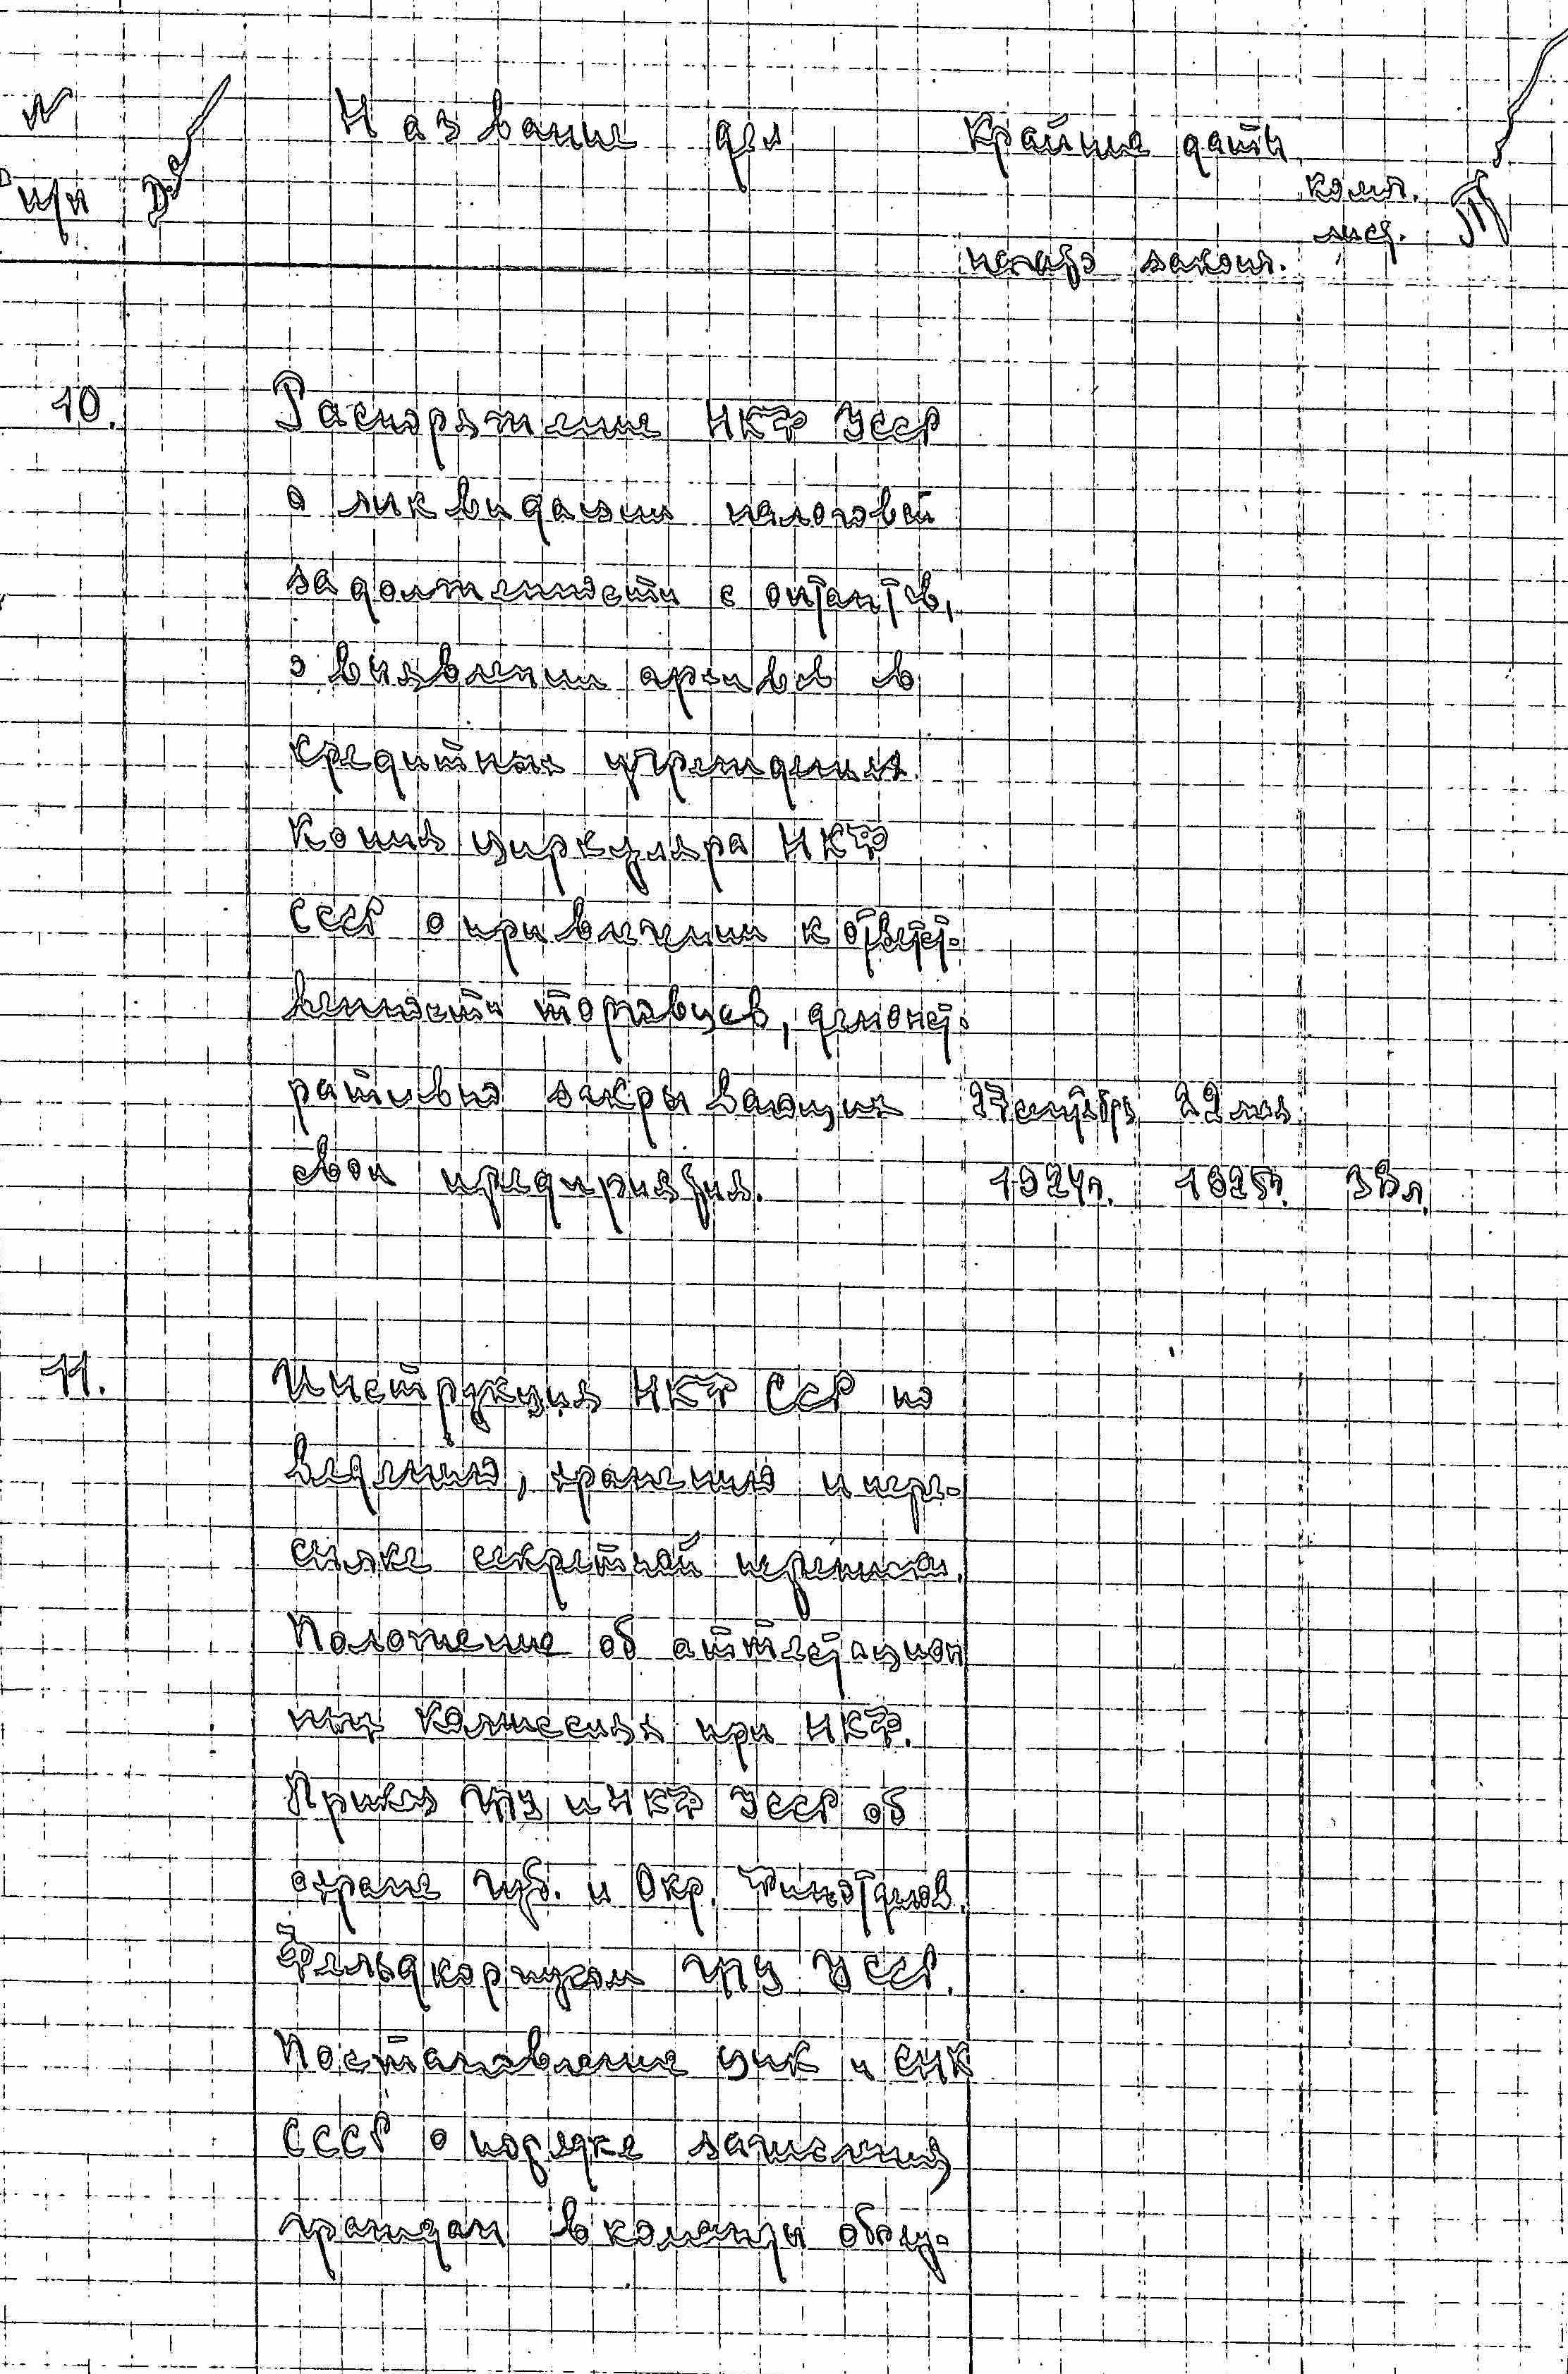 № Название дел Крайние даты
п/п колич.
лист.
начато законч.
10. Распоряжение НКФ УССР
о ликвидации налоговой
задолженности с оптантов,
о выявлении архивов в
кредитных учреждениях.
Копия циркуляра НКФ
СССР о привлечении к ответст-
венности торговцев, демонст-
ративно закрывающих 27 сентября 22 мая
свои предприятия. 1924г. 1925г. 38л.
11. Инструкция НКФ ССР по
ведению, хранению и пере-
сылке секретной переписки.
Положение об аттестацион
ных комиссиях при НКФ.
Приказ ГПУ и НКФ УССР об
охране Губ. и Окр. Финотделов.
Фельдкорпусом ГПУ УССР.
Постановление ЦИК и СНК
СССР о порядке зачисления
граждан в команды обслу-